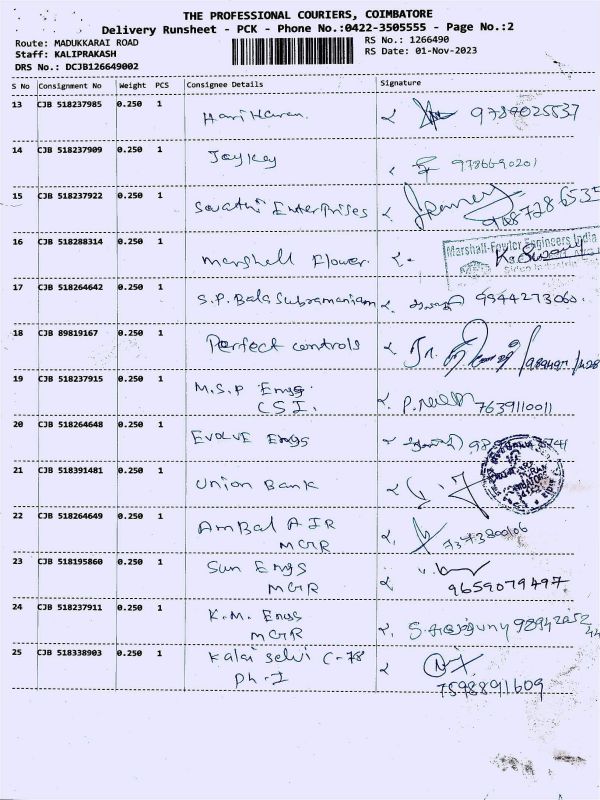 THE PROFESSIONAL COURIERS, COIMBATORE
Delivery Runsheet - PCK - Phone No.:0422-3505555 - Page No.:2
Route: MADUKKARAI ROAD
RS No.: 1266490
Staff: KALIPRAKASH
RS Date: 01-Nov-2023
DRS No.: DCJB126649002
S No Consignment No Weight PCS Consignee Details Signature
13 CJB 518237985 0.250 1 Hari Haran. 9789025537
14 CJB 518237909 0.250 1 Jaykay 9786690201
15 CJB 518237922 0.250 1 Swathi Enterprises
16 CJB 518288314 0.250 1 marshell Flower Marshall-Fowler Engineers India
17 CJB 518264642 0.250 1 S.P. Bala Subramaniam 9944273060.
18 CJB 89819167 0.250 1 Perfect controls
19 CJB 518237915 0.250 1 M.S.P Engg. 7639110011
CSI.
20 CJB 518264648 0.250 1 EVOLVE Engs
21 CJB 518391481 0.250 1 Union Bank
22 CJB 518264649 0.250 1 AmBal AIR
MGR
23 CJB 518195860 0.250 1 Sun Engs
MGR 9659079497
24 CJB 518237911 0.250 1 K.M. Engs
MGR
25 CJB 518338903 0.250 1 Kalai Selvi C-78
Ph-I 7598891609